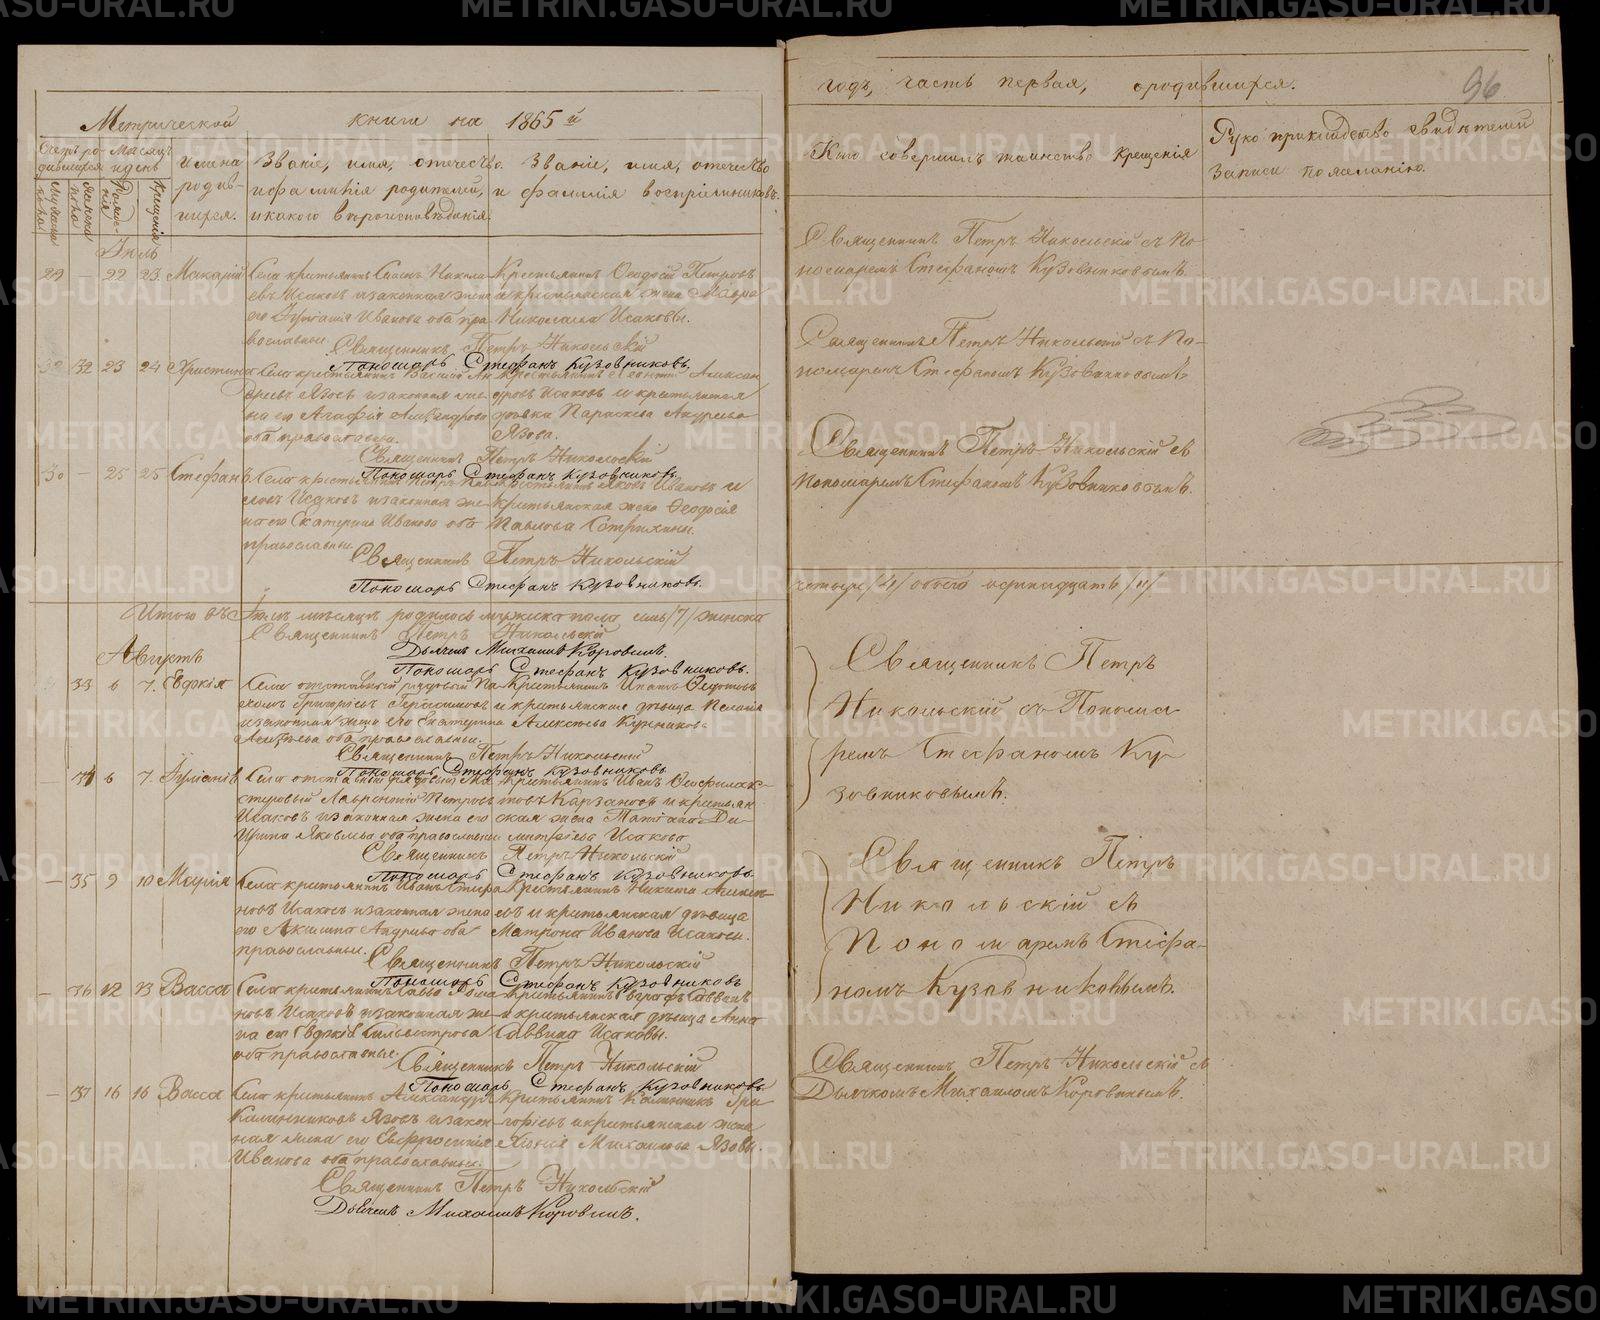 Метрической книги на 1865й
годъ, часть первая, о родившихся.
96
Счетъ родившихся
Мѣсяцъ и день
мужеска пола
женска пола
Рождения
Крещенія
имена родившихся.
Званіе, имя, отечество и фамилія родителей, и какого вѣроисповѣданія.
Званіе, имя, отечество и фамилія воспріемниковъ.
Кто совершилъ таинство крещенія
Рукоприкладство свидѣтелей записи по желанію.
Іюль
29 — 22 23 Макарій
Села крестьянинъ Николаевъ Исаковъ и законная жена его Иванова оба православные
Крестьянинъ Ѳеодосій Петровъ и крестьянская жена Мавра Николаева Исаковы.
Священникъ Петръ Никольскій
Пономарь Стефанъ Кузовниковъ
Священникъ Петръ Никольскій съ Пономаремъ Стефаномъ Кузовниковымъ
32 23 24 Христина
Села крестьянинъ Василій Язовъ и законная жена его Агафія Александрова оба православные.
Крестьянинъ Леонтій Александровъ Исаковъ и крестьянская Параскева Андреева Язова.
Священникъ Петръ Никольскій
Пономарь Стефанъ Кузовниковъ
Священникъ Петръ Никольскій съ Пономаремъ Стефаномъ Кузовниковымъ
30 — 25 25 Стефанъ
Села крестьянинъ Исаковъ и законная жена его Екатерина Иванова оба православные.
Крестьянинъ Яковъ Ивановъ и крестьянская жена Ѳеодосія Павлова
Священникъ Петръ Никольскій
Пономарь Стефанъ Кузовниковъ.
Священникъ Петръ Никольскій съ пономаремъ Стефаномъ Кузовниковымъ.
Итого въ Іюлѣ мѣсяцѣ родилось мужеска пола семь /7/ женска
четыре /4/ обоего одинадцать /11/
Священникъ Петръ Никольскій
Дьячекъ Михаилъ Коровинъ.
Пономарь Стефанъ Кузовниковъ.
Августъ
33 6 7. Евдокія
Села отставный рядовый Григорьевъ Герасимовъ и законная жена его Екатерина Алексѣева оба православные.
Крестьянинъ Игнатъ Ѳедотовъ и крестьянская дѣвица Пелагія Алексѣева
Священникъ Петръ Никольскій
Пономарь Стефанъ Кузовниковъ
Священникъ Петръ
Никольскій съ Понома-
ремъ Стефаномъ Ку-
зовниковымъ.
— 34 6 7.
Села отставный рядовый Лаврентій Петровъ Исаковъ и законная жена его Ирина Яковлева оба православные
Крестьянинъ Иванъ и крестьянская жена Татіана Димитріева Исакова
Священникъ Петръ Никольскій
Пономарь Стефанъ Кузовниковъ
— 35 9 10 Марія
Села крестьянинъ Иванъ Исаковъ и законная жена его Акилина Андреева оба православные.
Крестьянинъ Никита и крестьянская дѣвица Матрона Иванова Исаковы.
Священникъ Петръ Никольскій
Пономарь Стефанъ Кузовниковъ
Священникъ Петръ
Никольскій съ
Пономаремъ Стефа-
номъ Кузовниковымъ.
— 36 12 13 Васса
Села крестьянинъ Исаковъ и законная жена его Евдокія Сильвестрова оба православные.
Крестьянинъ Саввинъ и крестьянская дѣвица Анна Саввина Исаковы.
Священникъ Петръ Никольскій
Пономарь Стефанъ Кузовниковъ
— 37 16 16 Васса
Села крестьянинъ Александръ Калинниковъ Язовъ и законная жена его Евфросинія Иванова оба православные.
Крестьянинъ Калинникъ Григорьевъ и крестьянская жена Михаилова Язовы.
Священникъ Петръ Никольскій
Дьячекъ Михаилъ Коровинъ.
Священникъ Петръ Никольскій съ
Дьячкомъ Михаиломъ Коровинымъ.
METRIKI.GASO-URAL.RU